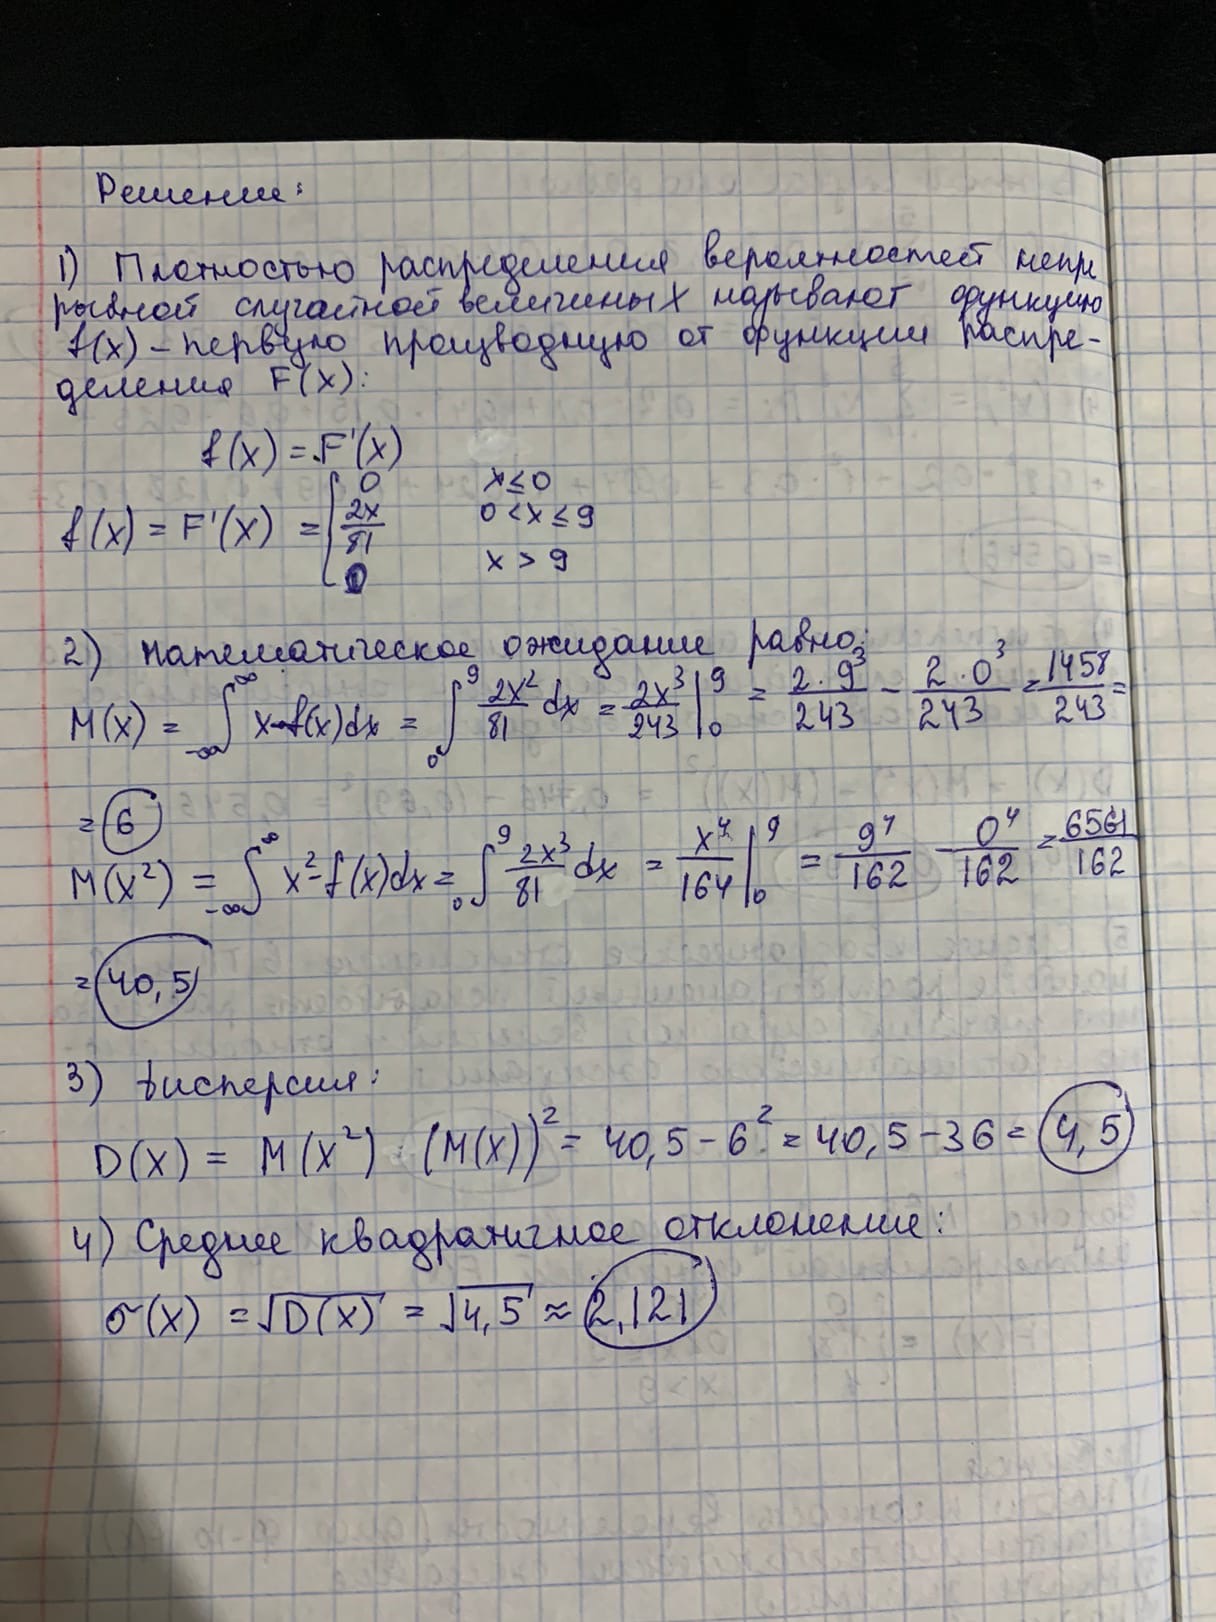 Решение:
1) Плотностью распределения вероятностей непре
рывной случайной величины X называют функцию
f(x) – первую производную от функции распре-
деления F(x):
f(x) = F'(x)
f(x) = F'(x) = { 0 x ≤ 0
2x/81 0 < x ≤ 9
0 x > 9
2) Математическое ожидание равно:
M(x) = ∫_{-∞}^{∞} x·f(x)dx = ∫_0^9 2x²/81 dx = 2x³/243 |_0^9 = 2·9³/243 − 2·0³/243 = 1458/243 =
= 6
M(x²) = ∫_{-∞}^{∞} x²·f(x)dx = ∫_0^9 2x³/81 dx = x⁴/164 |_0^9 = 9⁴/162 − 0⁴/162 = 6561/162
= 40,5
3) Дисперсия:
D(x) = M(x²) (M(x))² = 40,5 − 6² = 40,5 − 36 = 4,5
4) Среднее квадратичное отклонение:
σ(x) = √D(x) = √4,5 ≈ 2,121